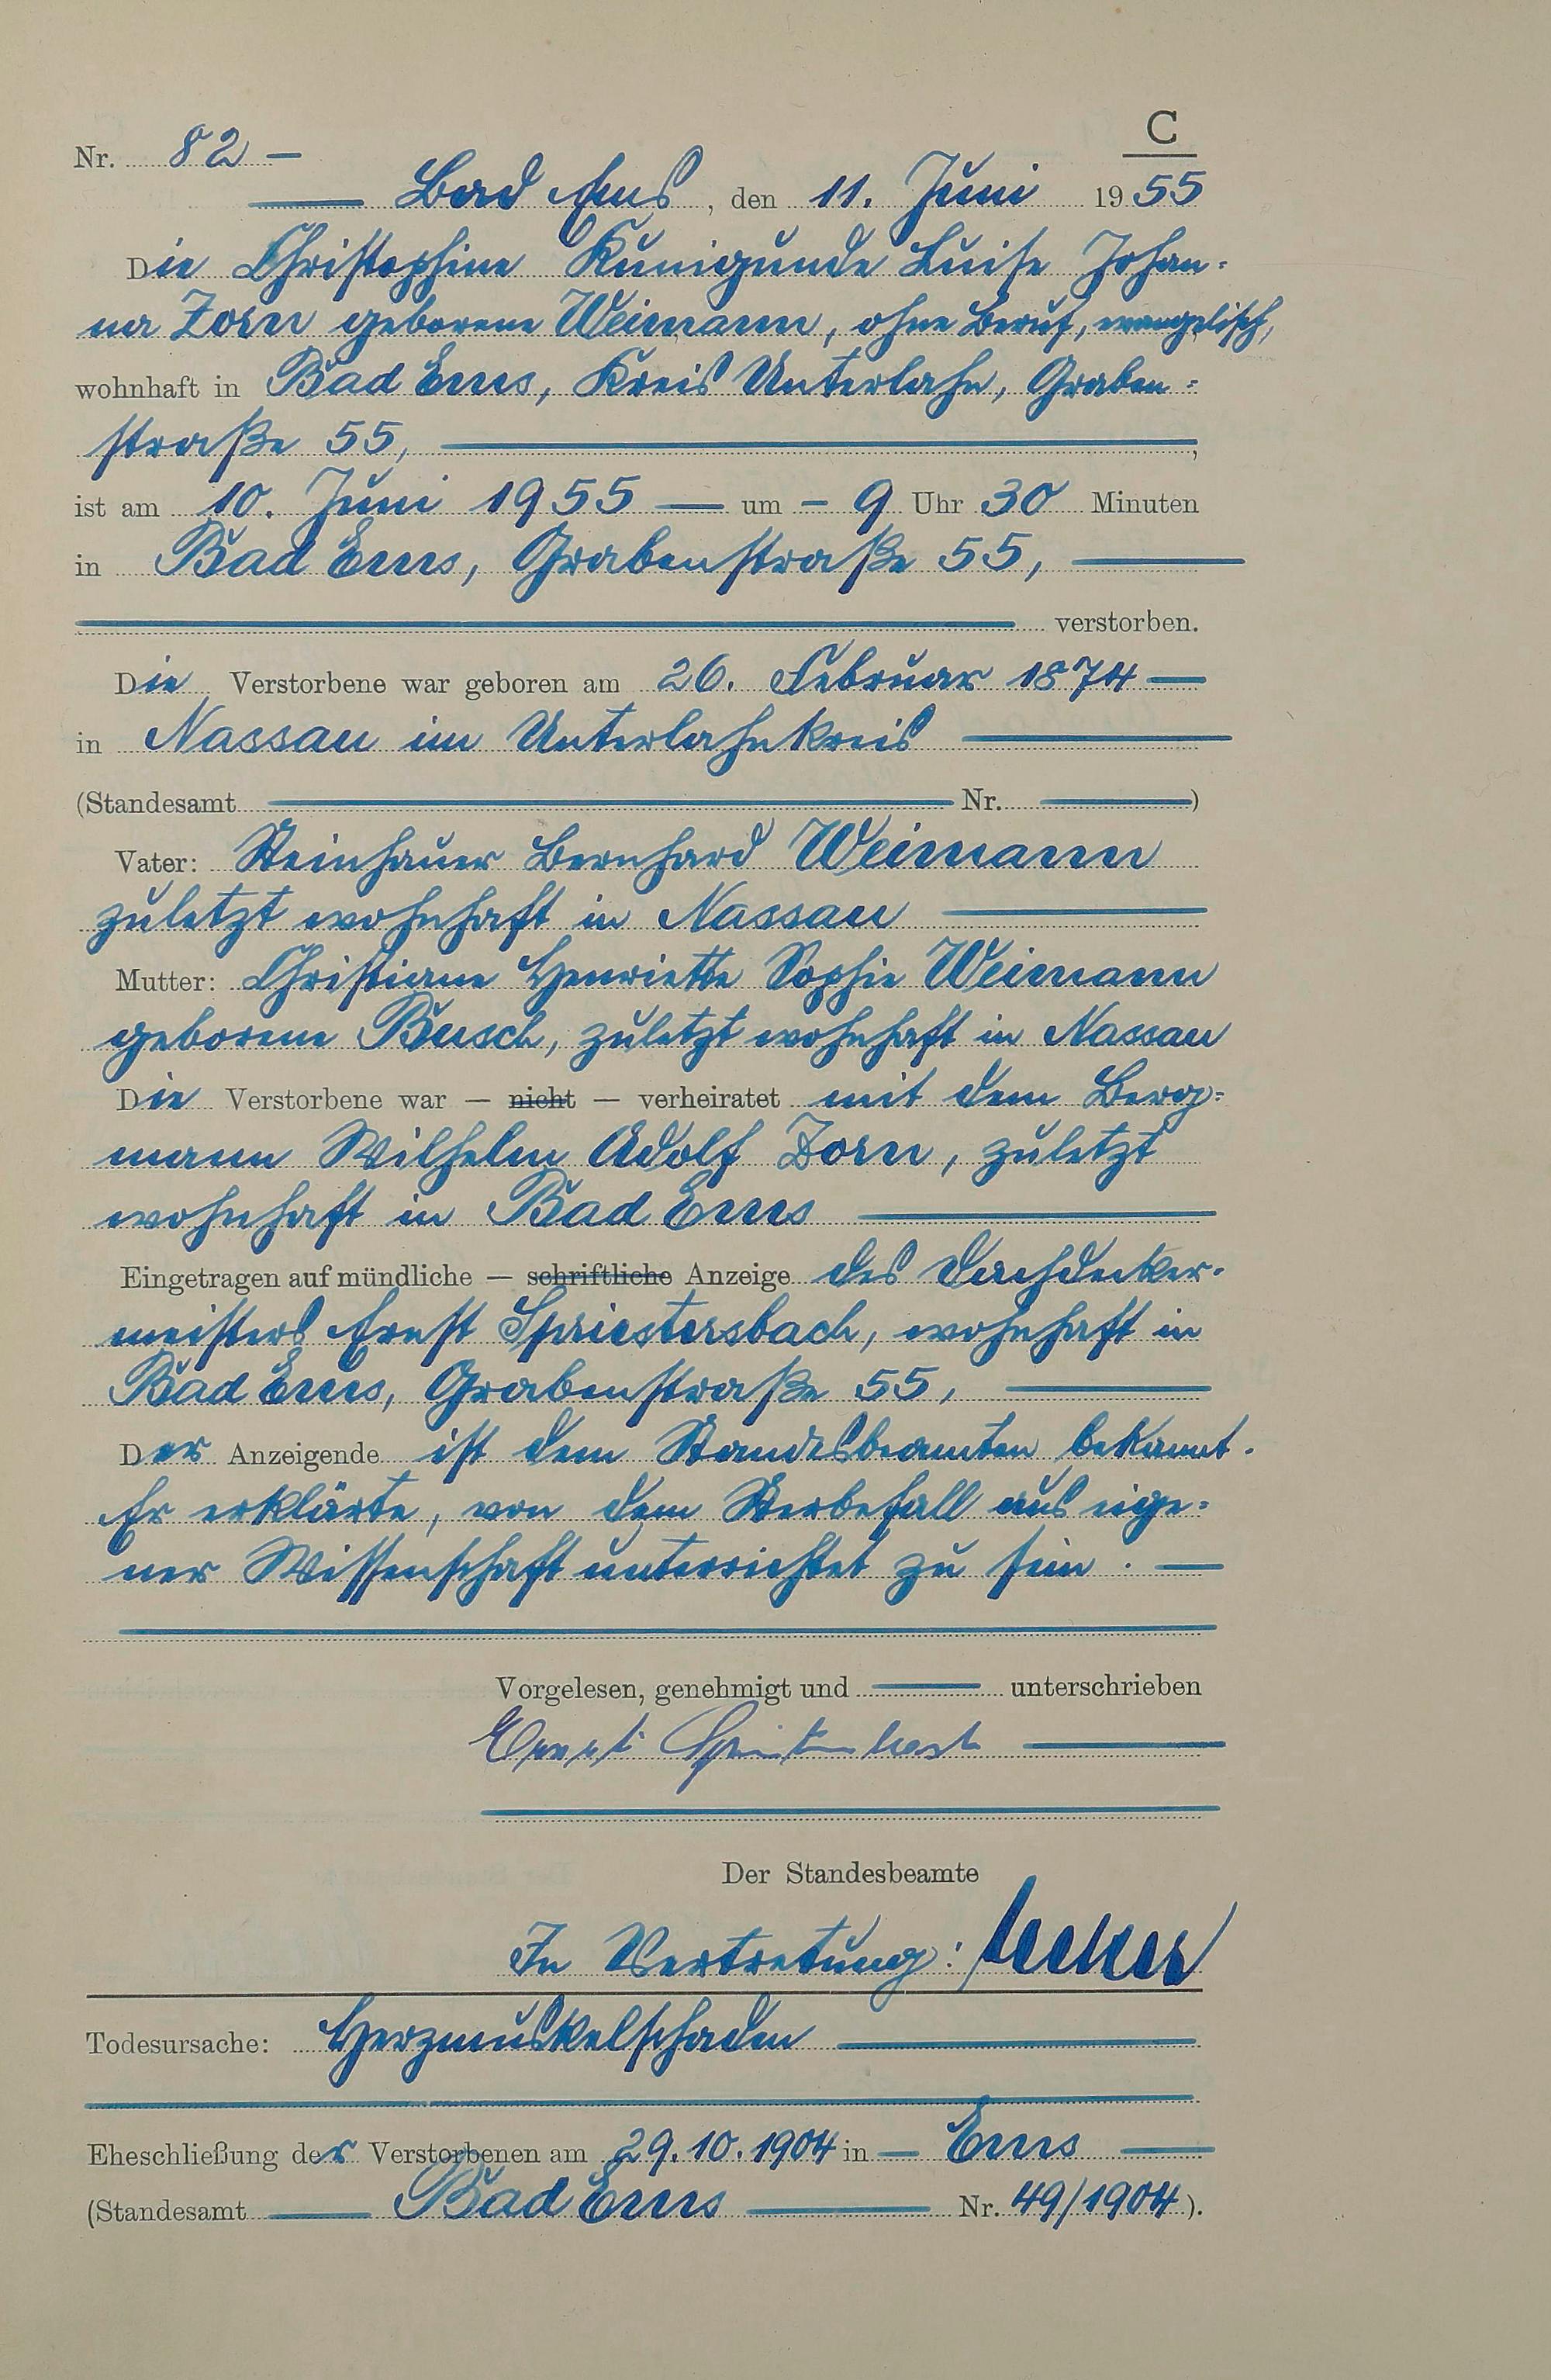 C
Nr. 82 —
Bad Ems, den 11. Juni 1955
Die Christophine Kunigunde Luise Johan-
na Zorn geborene Weimann, ohne Beruf, evangelisch,
wohnhaft in Bad Ems, Kreis Unterlahn, Graben-
straße 55,
ist am 10. Juni 1955 — um — 9 Uhr 30 Minuten
in Bad Ems, Grabenstraße 55,
verstorben.
Die Verstorbene war geboren am 26. Februar 1874 —
in Nassau im Unterlahnkreis
(Standesamt Nr. )
Vater: Steinhauer Bernhard Weimann
zuletzt wohnhaft in Nassau
Mutter: Christiane Henriette Sophie Weimann
geborene Busch, zuletzt wohnhaft in Nassau
Die Verstorbene war — nicht — verheiratet mit dem Berg-
mann Wilhelm Adolf Zorn, zuletzt
wohnhaft in Bad Ems
Eingetragen auf mündliche — schriftliche Anzeige des Dachdecker-
meisters Ernst Spriestersbach, wohnhaft in
Bad Ems, Grabenstraße 55,
Der Anzeigende ist dem Standesbeamten bekannt.
Er erklärte, von dem Sterbefall aus eige-
ner Wissenschaft unterrichtet zu sein. —
Vorgelesen, genehmigt und — unterschrieben
Ernst Spriestersbach
Der Standesbeamte
In Vertretung:
Todesursache: Herzmuskelschaden
Eheschließung der Verstorbenen am 29.10.1904 in — Ems —
(Standesamt Bad Ems Nr. 49/1904).